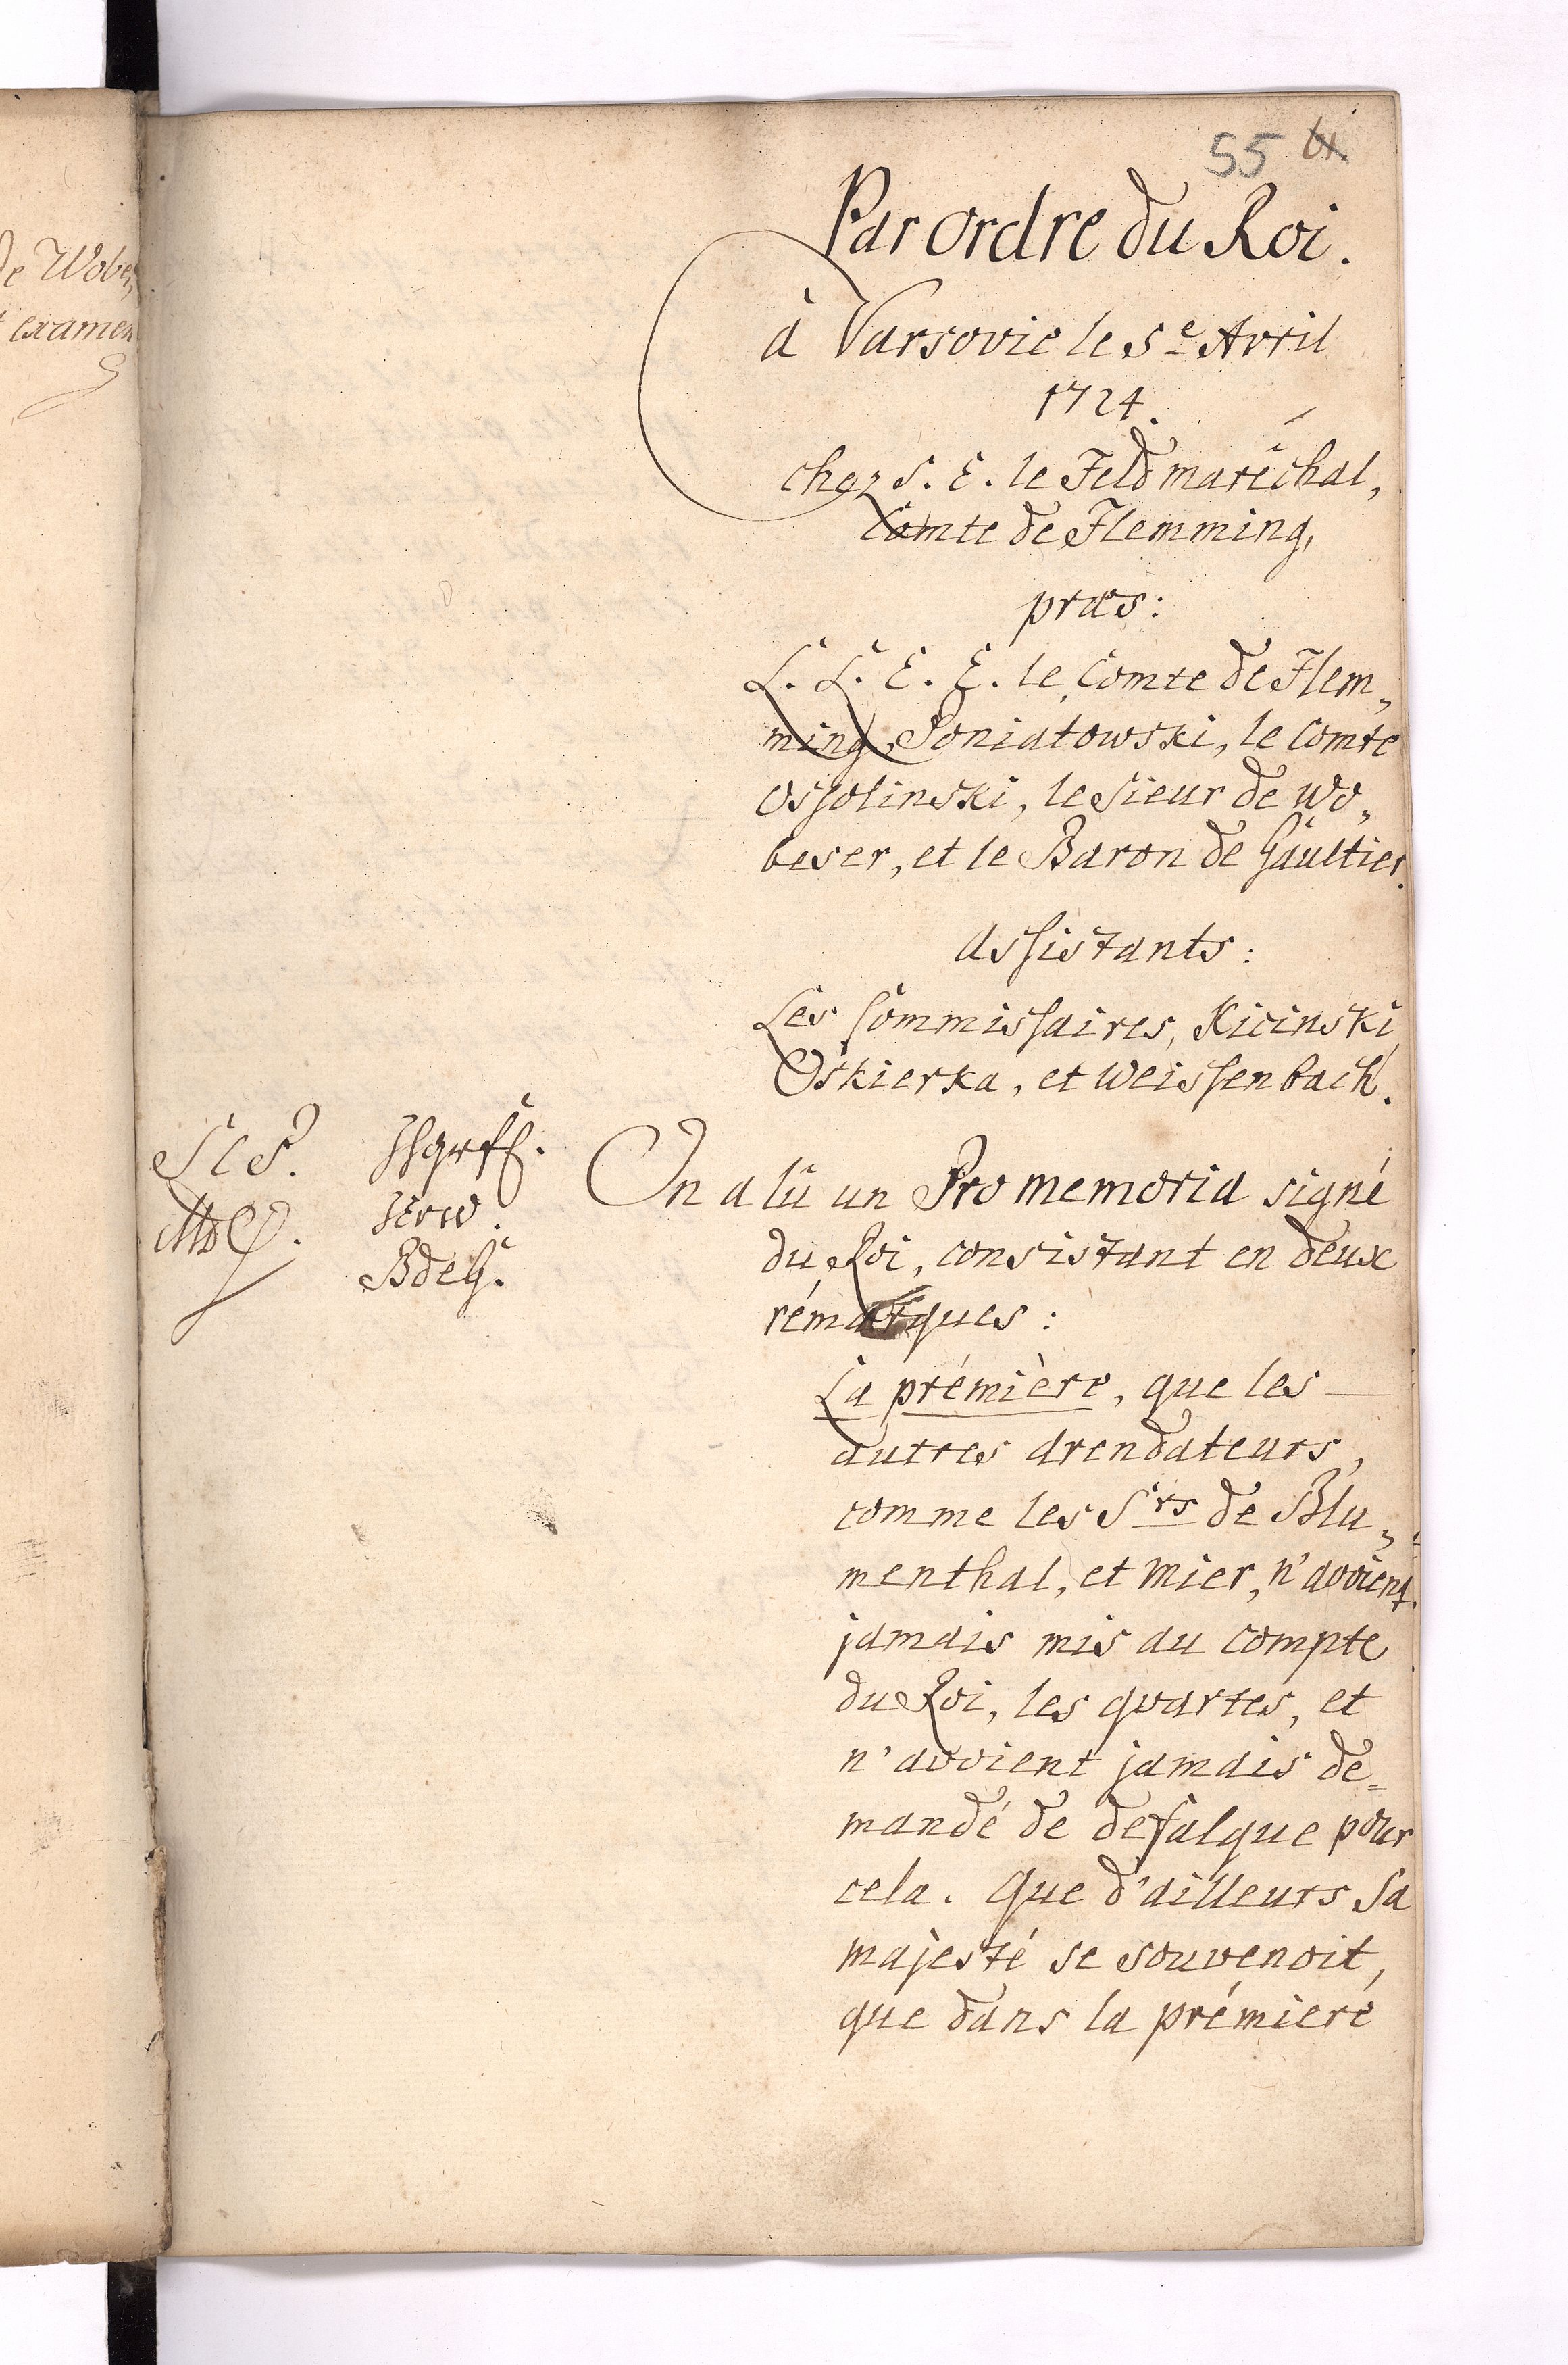 de Wobe,,
examen
55
Par ordre du Roi.
à Varsovie le 5e Avril
1724.
chez S. E. le Feldmaréchal,
Comte de Flemming,
præs:
L. L. E. E. le Comte de Flem,,
ming, Poniatowski, le Comte
Ossolinski, le Sieur de Wo,,
beser, et le Baron de Gaultier.
assistants:
Les Commissaires, Kicinski,
Oskierka, et Weissenbach.
On a lû un Pro memoria signé
du Roi, consistant en deux
rémarques:
La prémière, que les
autres arendateurs,
comme les Srs de Blu,,
menthal, et Mier, n'avoient
jamais mis au compte
du Roi, les quartes, et
n'avoient jamais de=
mandé de defalque pour
cela. Que d'ailleurs Sa
majesté se souvenoit,
que dans la prémiere
BdeG.